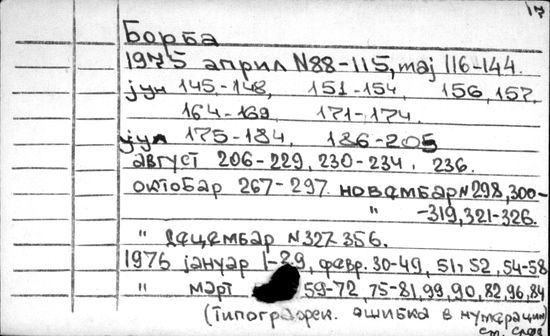 17
Борба
1975 април N88-115, мај 116-144.
јун 145-148, 151-154, 156, 157,
164-169 171-174.
јул 175-184, 186-205
август 206-229, 230-234, 236.
октобар 267-297. новембар N298, 300-
" -319, 321-326.
" децембар N327-356.
1976 јануар 1-29, февр. 30-49, 51, 52, 54-58
" март 59-72, 75-81, 99, 90, 82, 96, 84
(Типографск. ошибка в нумерации